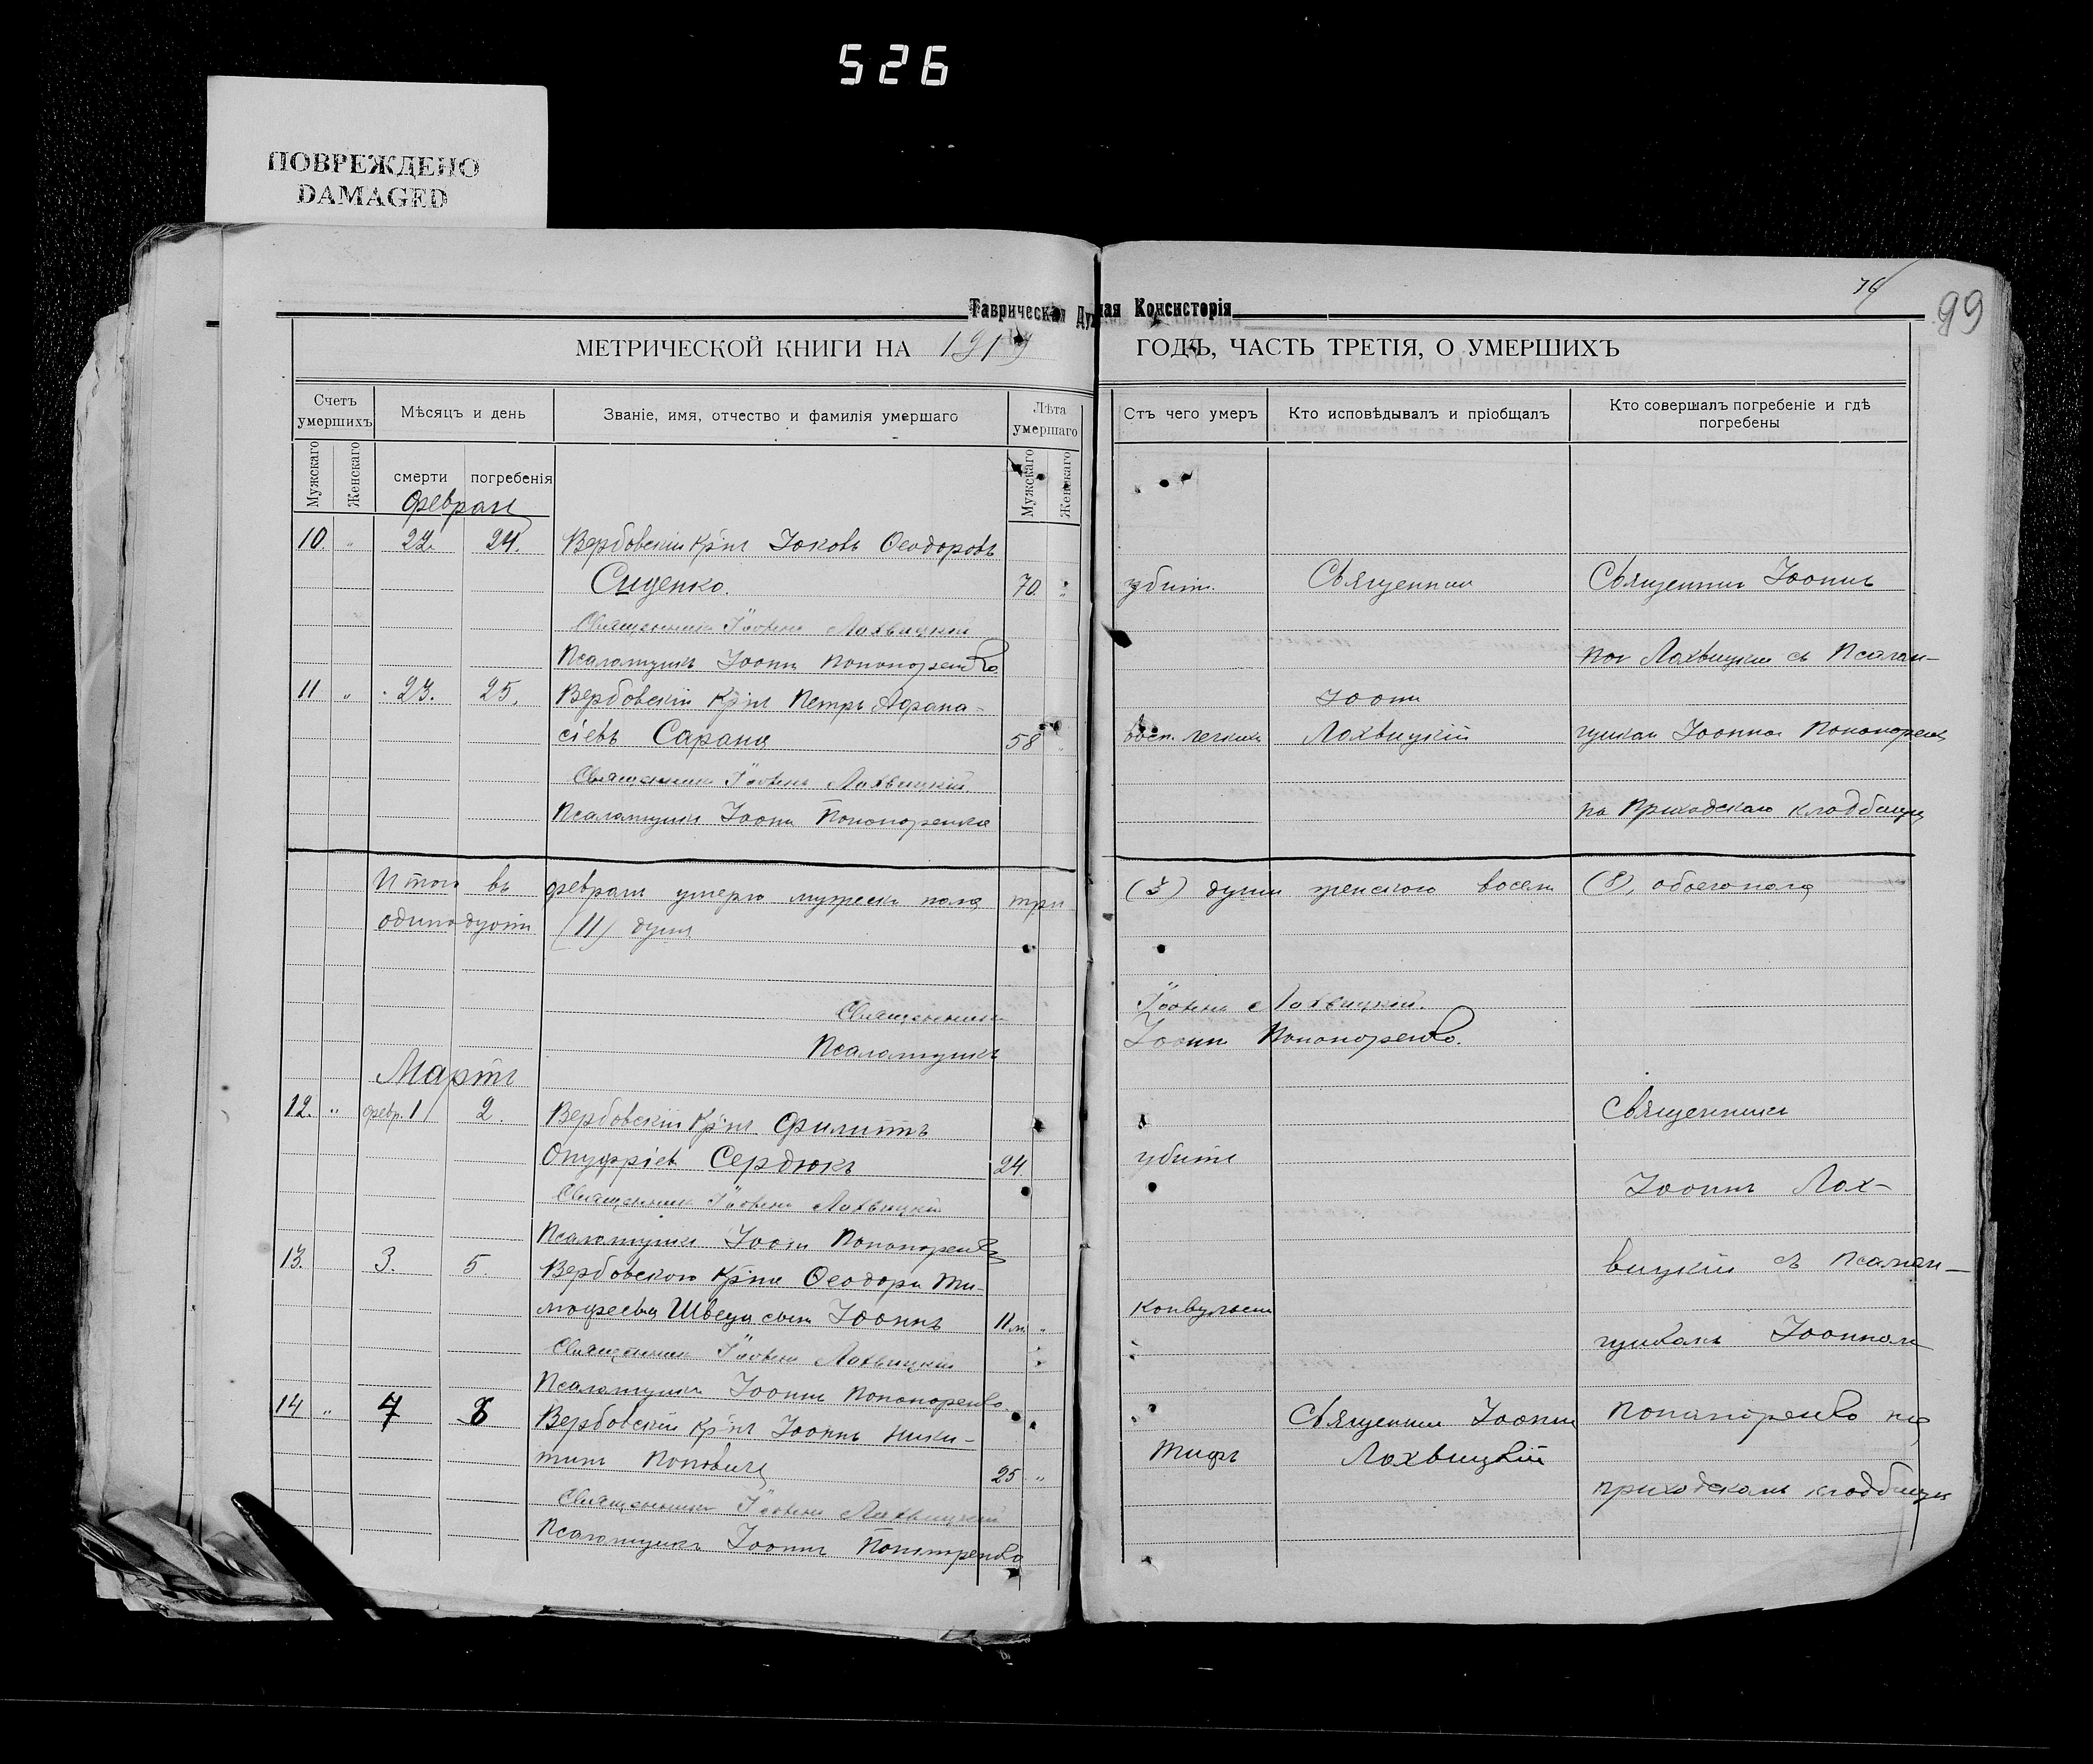 526
ПОВРЕЖДЕНО
DAMAGED
76
99
Таврическая Духовная Консисторія
МЕТРИЧЕСКОЙ КНИГИ НА 1919 ГОДЪ, ЧАСТЬ ТРЕТІЯ, О УМЕРШИХЪ
Счетъ умершихъ
Мѣсяцъ и день
Званіе, имя, отчество и фамилія умершаго
Лѣта умершаго
Отъ чего умеръ
Кто исповѣдывалъ и пріобщалъ
Кто совершалъ погребеніе и гдѣ погребены
Мужскаго
Женскаго
смерти
погребенія
Мужскаго
Женскаго
Феврал
10. " 22. 24. Вербовскій Кр-нъ Іаковъ Ѳеодоровъ
Сиденко. 70. " убитъ. Священник Священникъ Іоаннъ
Священникъ Іоаннъ Лохвицкій
Псаломщикъ Іоаннъ Пономаренко. Лохвицкій съ Псалом-
11 " 23. 25. Вербовскій Кр-нъ Петръ Афана- Іоаннъ
сіевъ Сарана 58 " восп. легкихъ Лохвицкій щикомъ Іоанномъ Пономаренко
Священникъ Іоаннъ Лохвицкій.
Псаломщикъ Іоаннъ Пономаренко на Приходскомъ кладбищѣ
Итого въ феврал умерло мужеска пола три (3) души женского восем (8), обоего пола
одинадцать (11) душъ
Священникъ Іоаннъ Лохвицкій.
Псаломщикъ Іоаннъ Пономаренко.
Мартъ
12. " февр. 1 2. Вербовскій Кр-нъ Филиппъ Священникъ
Онуфріевъ Сердюкъ 24. убитъ
Священникъ Іоаннъ Лохвицкій Іоаннъ Лох-
Псаломщикъ Іоаннъ Пономаренко
13. 3. 5. Вербовского Кр-на Ѳеодора Ти- вицкій съ Псалом-
мофеева Швеца сынъ Іоаннъ 11 м. " Конвульсіи
Священникъ Іоаннъ Лохвицкій щикомъ Іоанномъ
Псаломщикъ Іоаннъ Пономаренко.
14 " 7 8 Вербовскій Кр-нъ Іоаннъ Ники- Священникъ Іоаннъ Пономаренко на
тинъ Поповичъ 25 " Тифъ Лохвицкій
Священникъ Іоаннъ Лохвицкій приходскомъ кладбищѣ
Псаломщикъ Іоаннъ Пономаренко